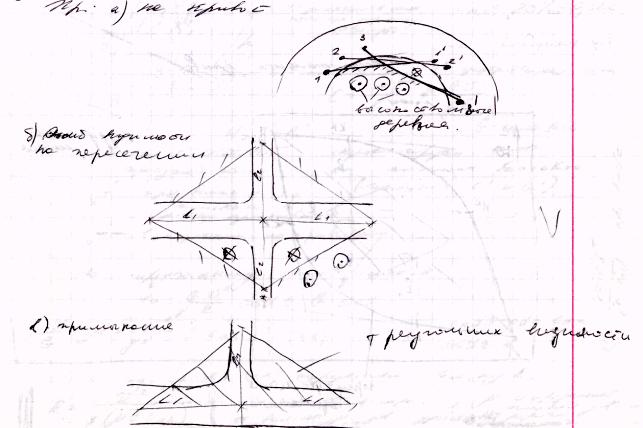 Пр: а) на кривой
3
2 1' 2'
1 3'
высокоствольные
деревья.
б) видимости
на пересечении
L2
L1 L1
L2
в) примыкание
треугольник видимости
L1 L1